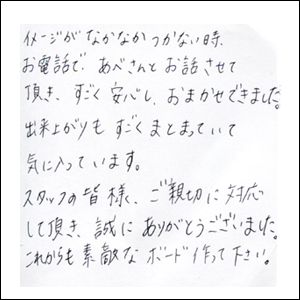 イメージが なかなか つかない時、
お電話で、あべさんと お話させて
頂き、すごく 安心し、おまかせできました。
出来上がりも すごく まとまっていて
気に入っています。
スタッフの皆様、ご親切に 対応
して頂き、誠に ありがとうございました。
これからも 素敵な ボード 作って下さい。